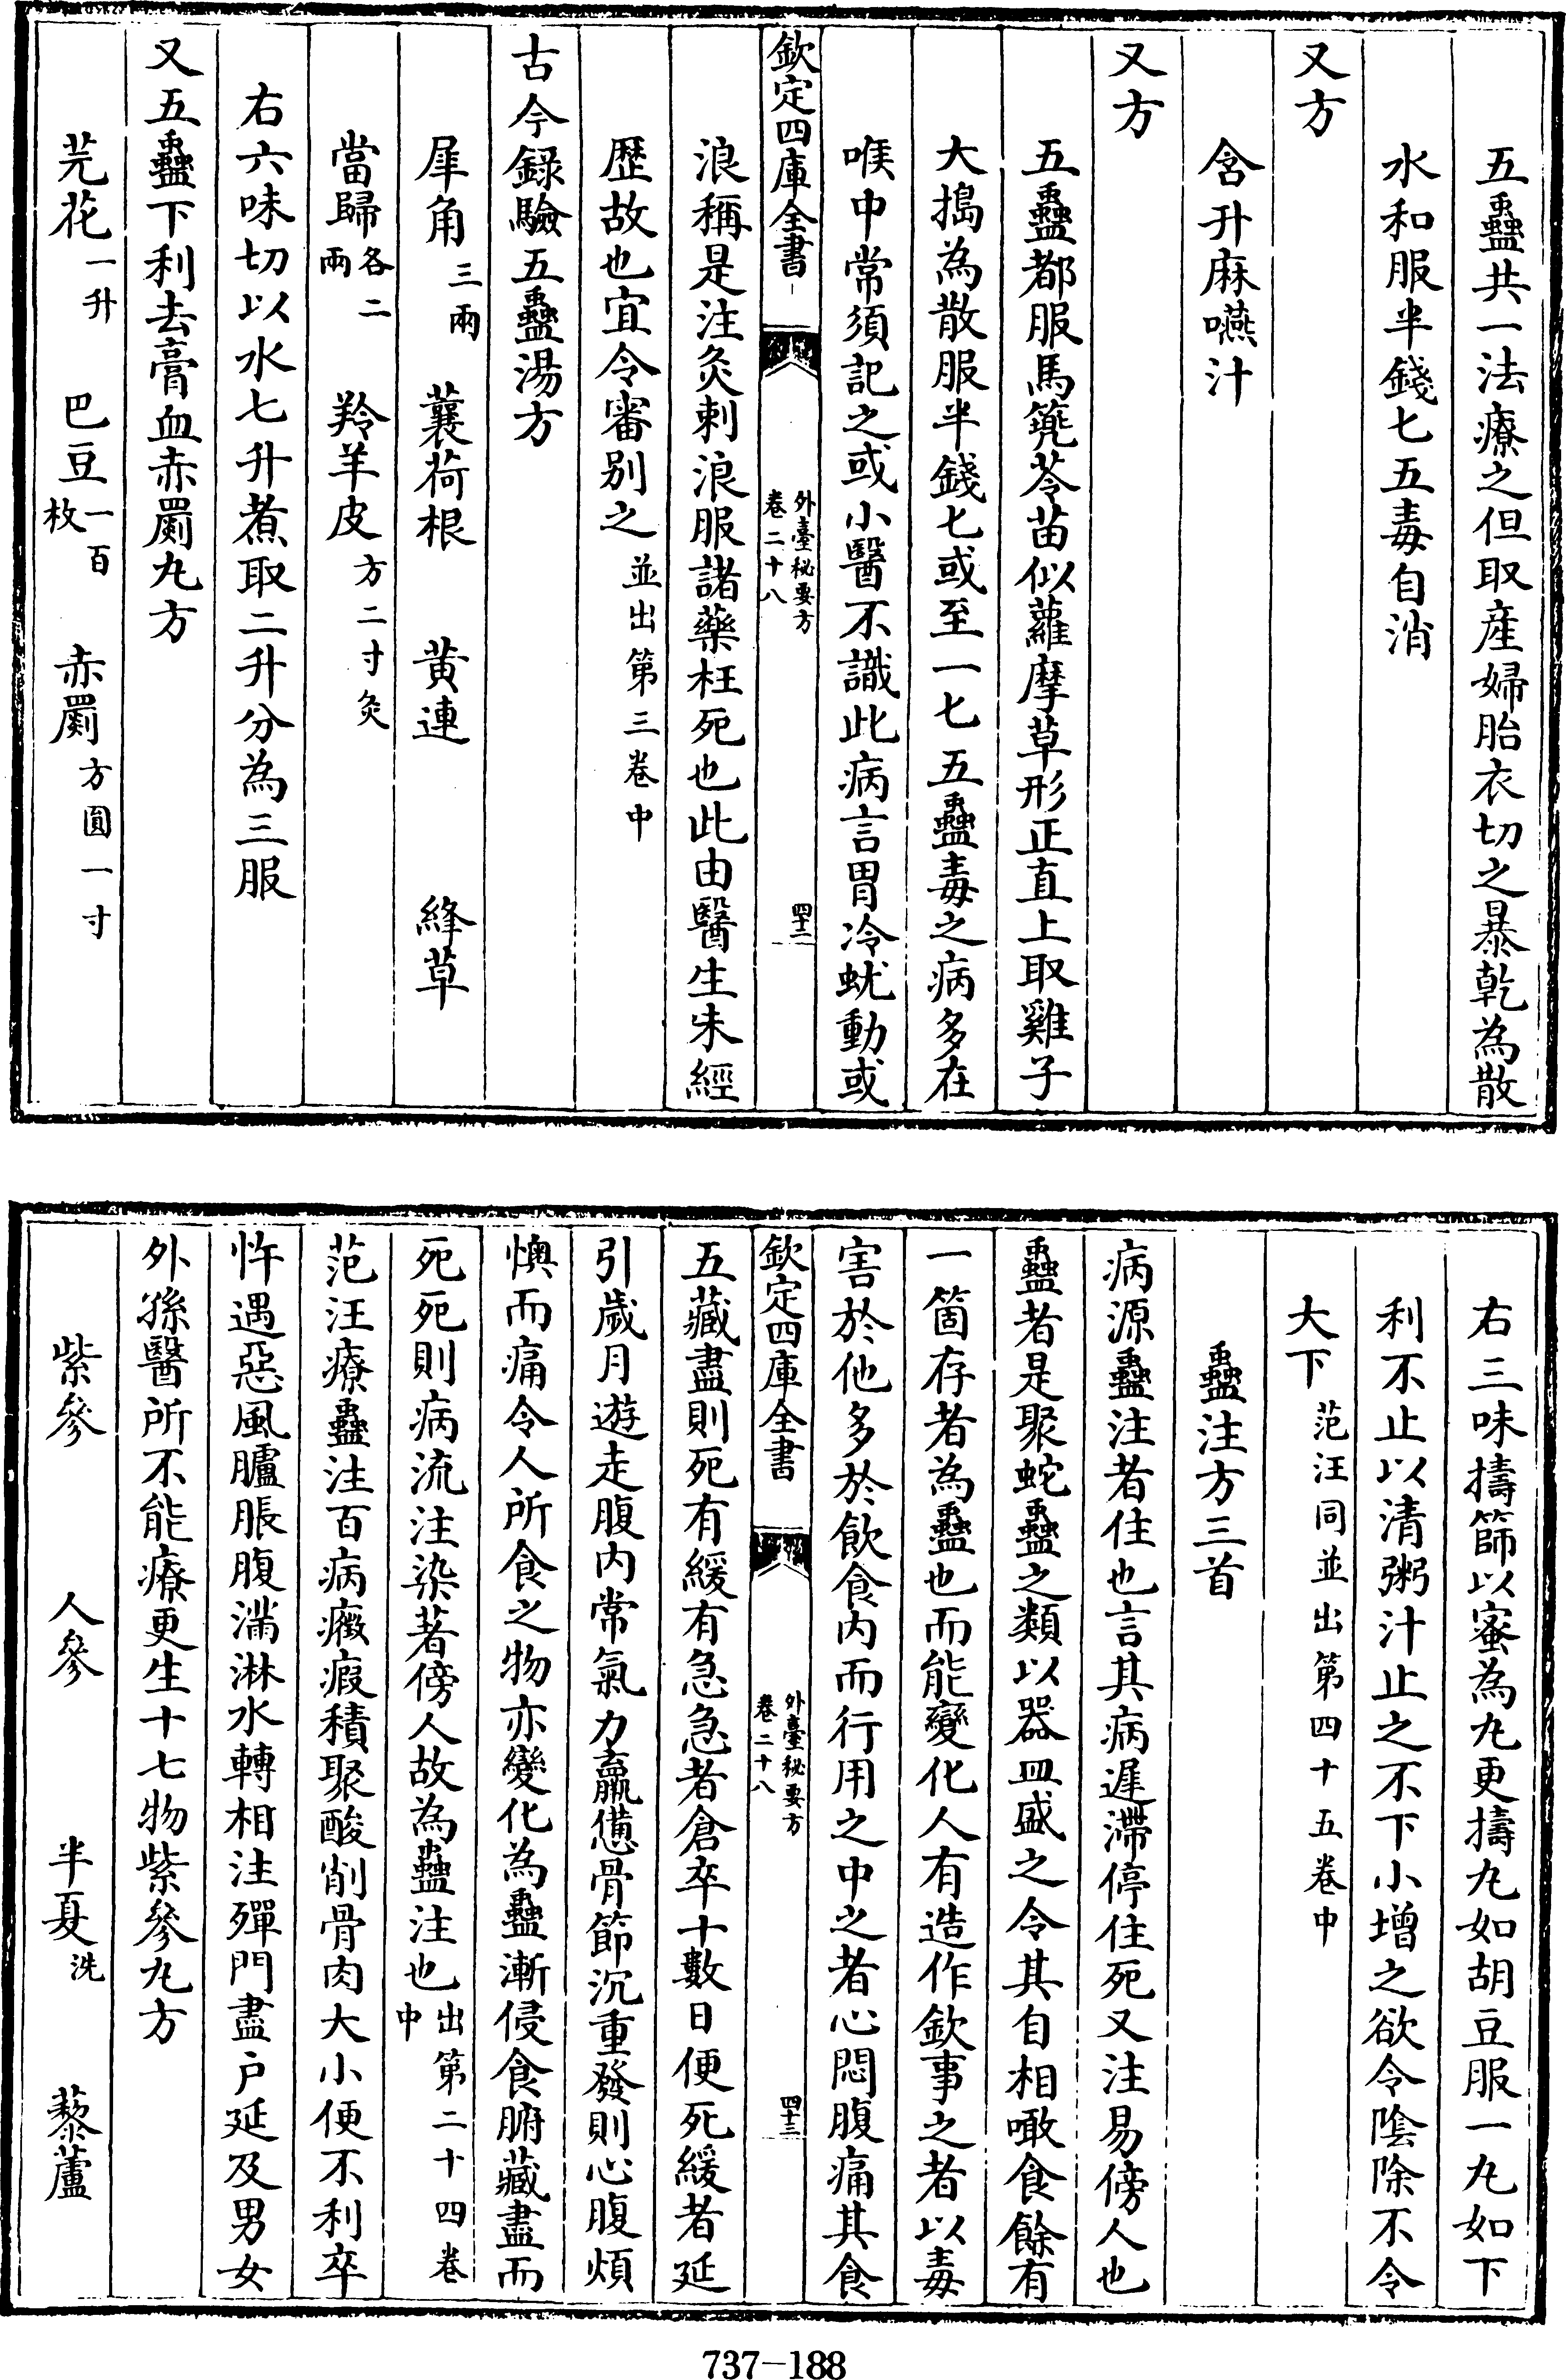 五蠱共一法療之但取産婦胎衣切之暴乾為散
水和服半錢七五毒自消
又方
含升麻嚥汁
又方
五蠱都服馬兠苓苗似蘿摩草形正直上取雞子
大搗為散服半錢七或至一七五蠱毒之病多在
喉中常須記之或小醫不識此病言胃冷蚘動或
欽定四庫全書
外臺秘要方
卷二十八
四十二
浪稱是注灸刺浪服諸藥枉死也此由醫生未經
歴故也宜令審别之並出第三卷中
古今録驗五蠱湯方
犀角三兩 蘘荷根 黄連 絳草
當歸各二兩 羚羊皮方二寸灸
右六味切以水七升煮取二升分為三服
又五蠱下利去膏血赤罽丸方
芫花一升 巴豆一百枚 赤罽方圎一寸
右三味擣篩以蜜為丸更擣丸如胡豆服一丸如下
利不止以清粥汁止之不下小增之欲令隂除不令
大下范汪同並出第四十五卷中
蠱注方三首
病源蠱注者住也言其病遲滯停住死又注易傍人也
蠱者是聚蛇蠱之類以器皿盛之令其自相噉食餘有
一箇存者為蠱也而能變化人有造作欽事之者以毒
害於他多於飲食内而行用之中之者心悶腹痛其食
欽定四庫全書
外臺秘要方
卷二十八
四十三
五藏盡則死有緩有急急者倉卒十數日便死緩者延
引歲月遊走腹内常氣力羸憊骨節沉重發則心腹煩
懊而痛令人所食之物亦變化為蠱漸侵食腑藏盡而
死死則病流注染著傍人故為蠱注也出第二十四卷中
范汪療蠱注百病癥瘕積聚酸削骨肉大小便不利卒
忤遇惡風臚脹腹滿淋水轉相注殫門盡户延及男女
外孫醫所不能療更生十七物紫參丸方
紫參 人參 半夏洗 藜蘆
737-188